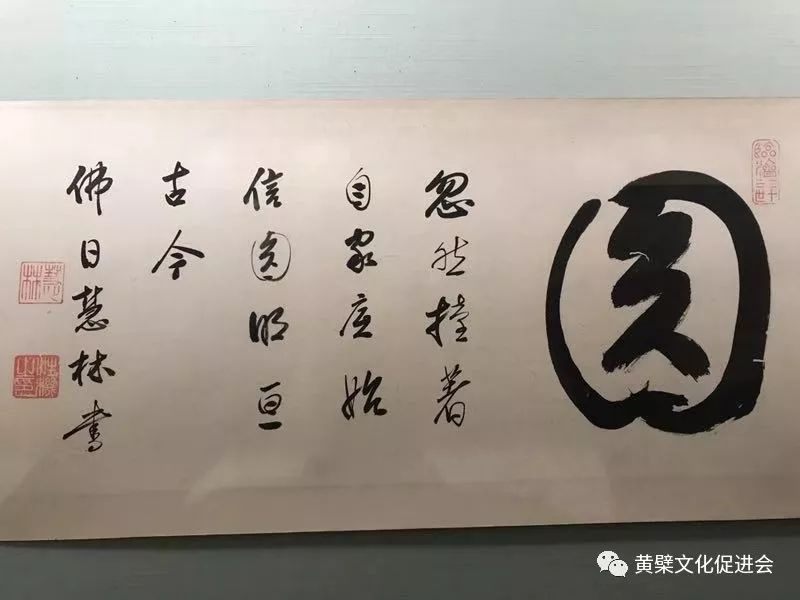 圓
忽然撞著
自家底始
信圓明亘
古今
佛日慧林書
慧林
黄檗文化促进会